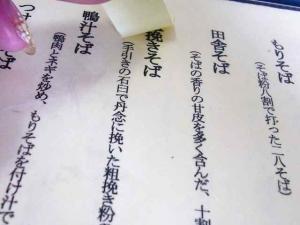 もりそば
(そば粉八割で打った二八そば)
田舎そば
(そばの香りの甘皮を多く含んだ、十割
挽きそば
(手引きの石臼で丹念に挽いた粗挽き粉
鴨汁そば
(鴨肉とネギを炒め、もりそばを付け汁で
つけ